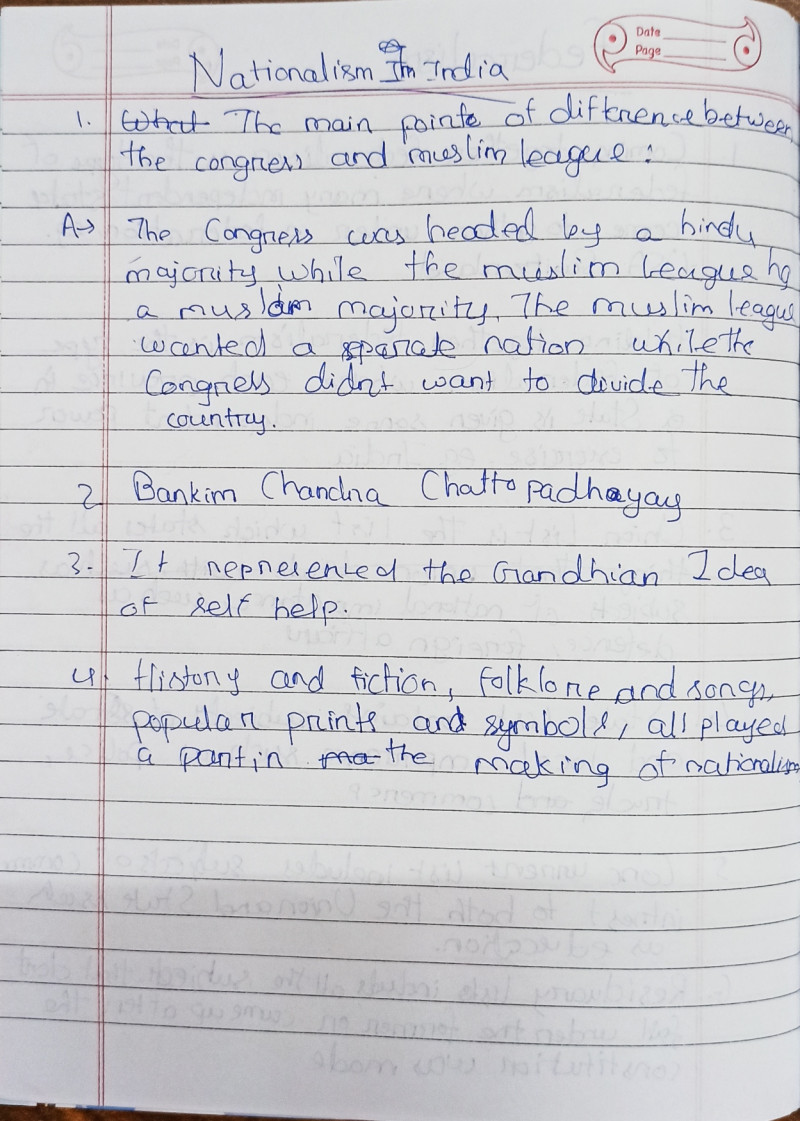 Date
Page
Nationalism In India
1. What The main points of difference between
the congress and muslim league:
A→ The Congress was headed by a hindu
majority while the muslim League by
a muslim majority. The muslim league
wanted a separate nation while the
Congress didn't want to divide the
country.
2. Bankim Chandra Chattopadhayay
3. It represented the Gandhian Idea
of self help.
4. History and fiction, folklore and songs,
popular prints and symbols, all played
a part in the making of nationalism